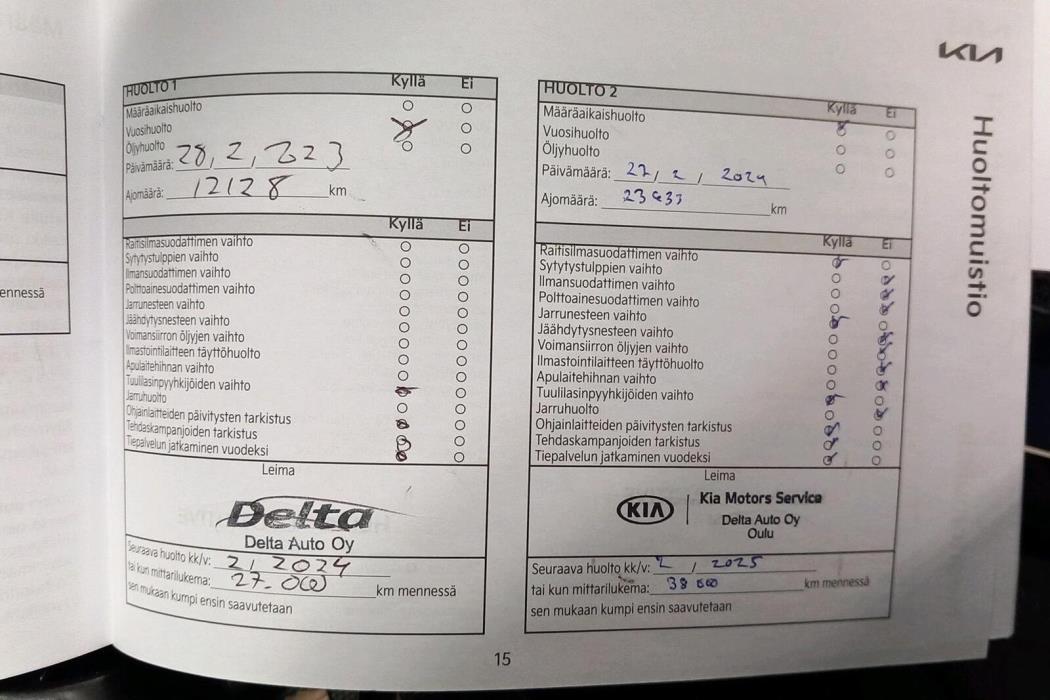 KIA
Huoltomuistio
ennessä
HUOLTO 1 Kyllä Ei
Määräaikaishuolto
Vuosihuolto
Öljyhuolto
Päivämäärä: 28, 2, 2023
Ajomäärä: 12128 km
Kyllä Ei
Raitisilmasuodattimen vaihto
Sytytystulppien vaihto
Ilmansuodattimen vaihto
Polttoainesuodattimen vaihto
Jarrunesteen vaihto
Jäähdytysnesteen vaihto
Voimansiirron öljyjen vaihto
Ilmastointilaitteen täyttöhuolto
Apulaitehihnan vaihto
Tuulilasinpyyhkijöiden vaihto
Jarruhuolto
Ohjainlaitteiden päivitysten tarkistus
Tehdaskampanjoiden tarkistus
Tiepalvelun jatkaminen vuodeksi
Leima
Delta
Delta Auto Oy
Seuraava huolto kk/v: 2, 2024
tai kun mittarilukema: 27.000 km mennessä
sen mukaan kumpi ensin saavutetaan
HUOLTO 2 Kyllä Ei
Määräaikaishuolto
Vuosihuolto
Öljyhuolto
Päivämäärä: 27, 2, 2024
Ajomäärä: km
Kyllä Ei
Raitisilmasuodattimen vaihto
Sytytystulppien vaihto
Ilmansuodattimen vaihto
Polttoainesuodattimen vaihto
Jarrunesteen vaihto
Jäähdytysnesteen vaihto
Voimansiirron öljyjen vaihto
Ilmastointilaitteen täyttöhuolto
Apulaitehihnan vaihto
Tuulilasinpyyhkijöiden vaihto
Jarruhuolto
Ohjainlaitteiden päivitysten tarkistus
Tehdaskampanjoiden tarkistus
Tiepalvelun jatkaminen vuodeksi
Leima
KIA Kia Motors Service
Delta Auto Oy
Oulu
Seuraava huolto kk/v: 2 / 2025
tai kun mittarilukema: 38 000 km mennessä
sen mukaan kumpi ensin saavutetaan
15